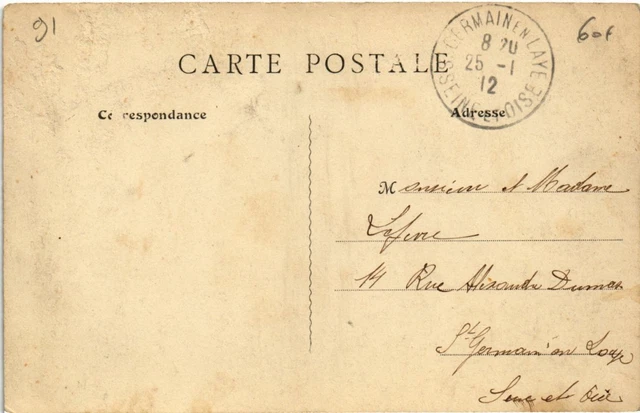 91
60f
ST GERMAIN EN LAYE
8 20
25 - 1
12
SEINE ET OISE
CARTE POSTALE
Correspondance
Adresse
Monsieur et Madame
Lefevre
14 Rue Alexandre Dumas
St Germain en Laye
Seine et Oise